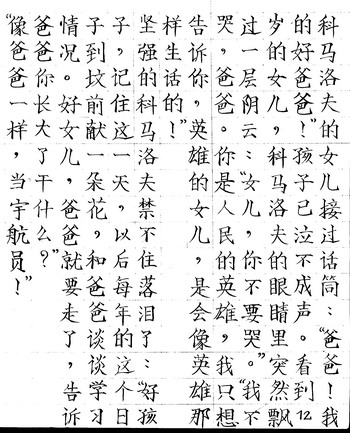 科马洛夫的女儿接过话筒：“爸爸！我
的好爸爸！”孩子已泣不成声。看到12
岁的女儿，科马洛夫的眼睛里突然飘
过一层阴云：“女儿，你不要哭。”“我不
哭，爸爸。你是人民的英雄，我只想
告诉你，英雄的女儿，是会像英雄那
样生话的！”
坚强的科马洛夫禁不住落泪了：“好孩
子，记住这一天，以后每年的这个日
子到坟前献一朵花，和爸爸谈谈学习
情况。好女儿，爸爸就要走了，告诉
爸爸你长大了干什么？”
“像爸爸一样，当宇航员！”